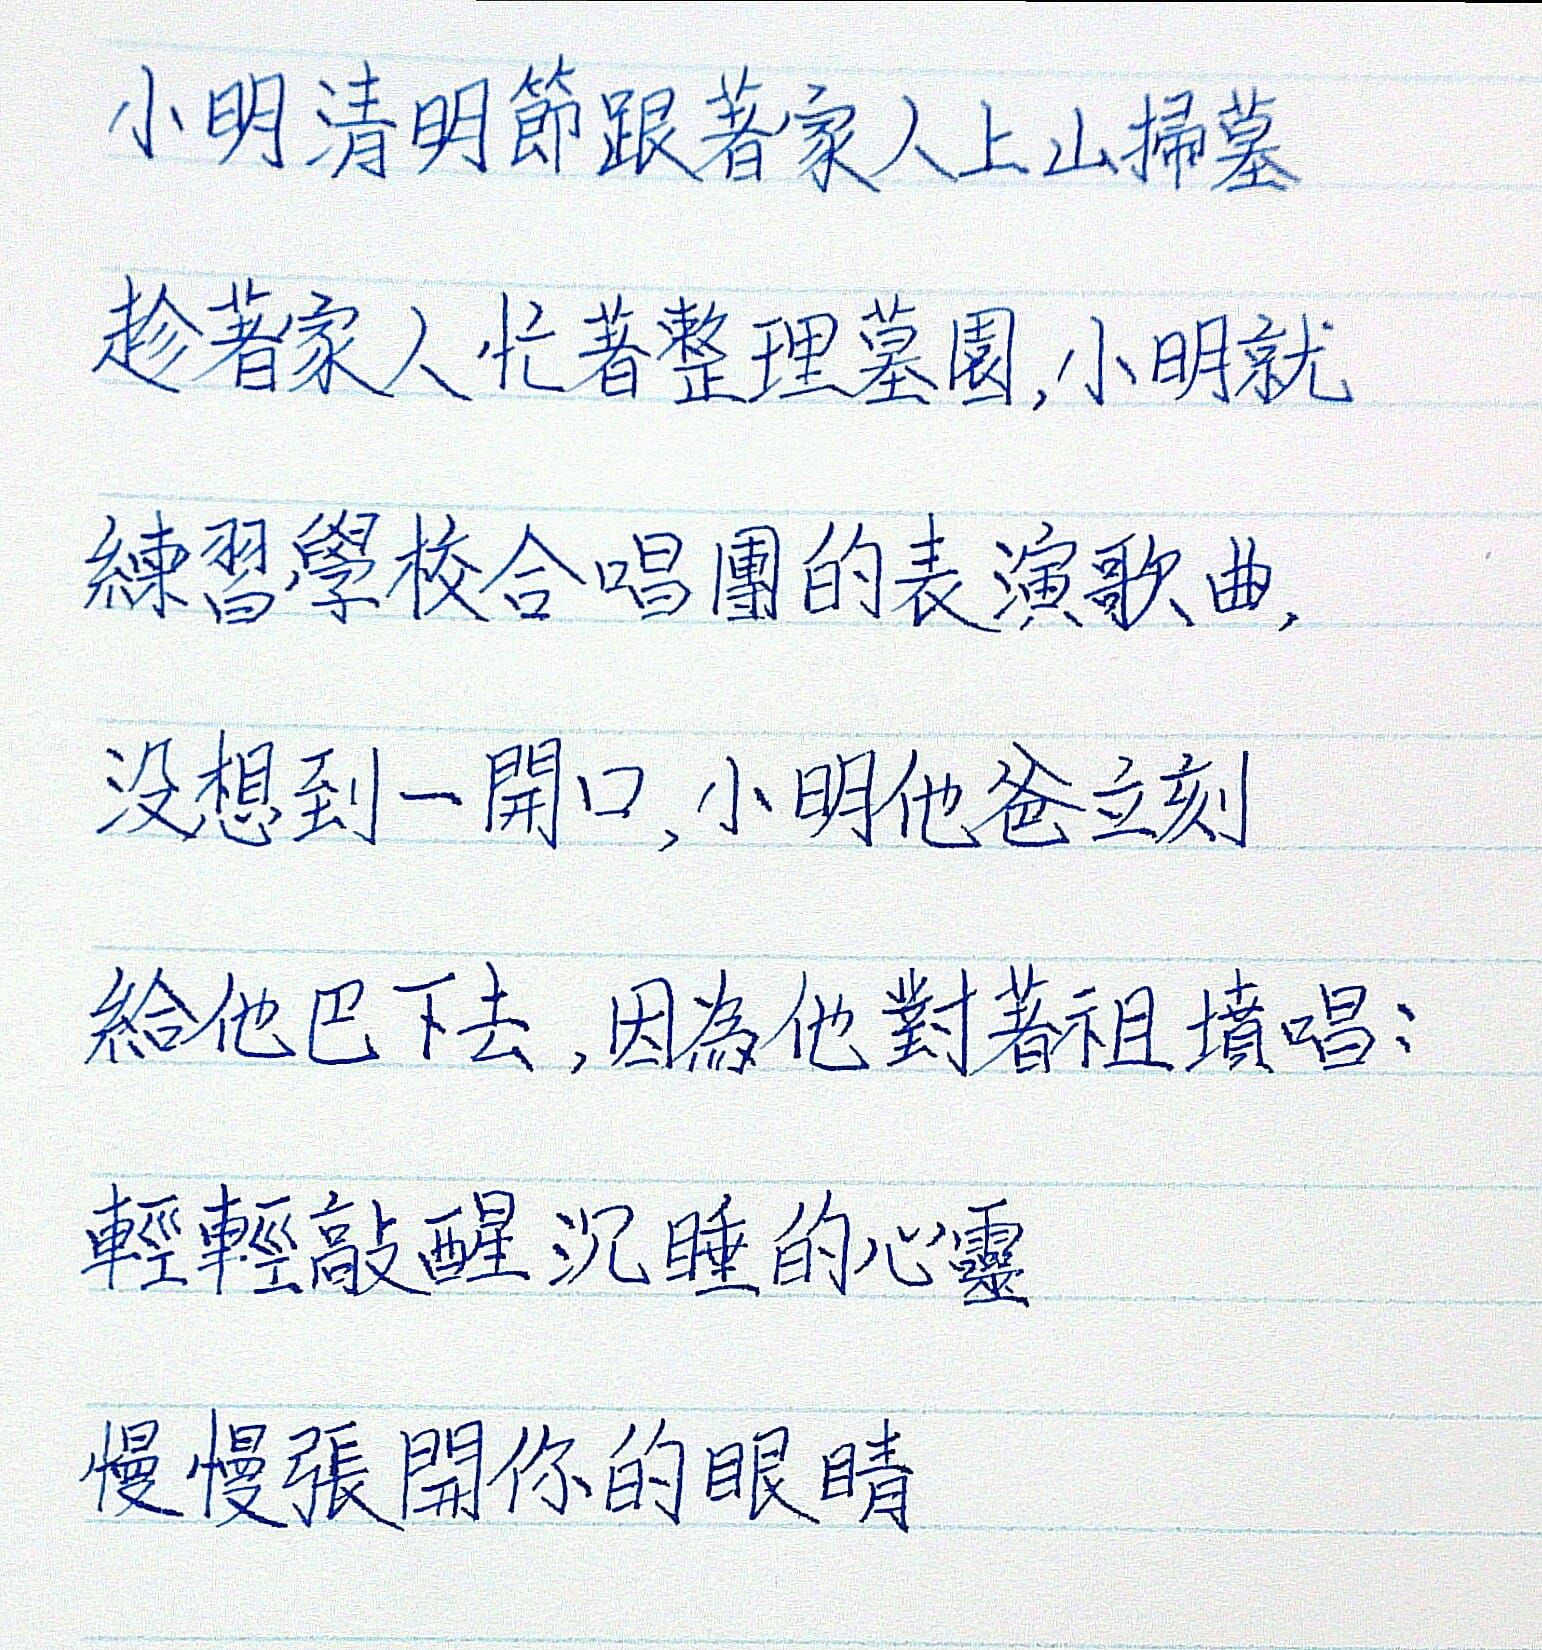 小明清明節跟著家人上山掃墓
趁著家人忙著整理墓園,小明就
練習學校合唱團的表演歌曲,
沒想到一開口,小明他爸立刻
給他巴下去,因為他對著祖墳唱:
輕輕敲醒沉睡的心靈
慢慢張開你的眼睛